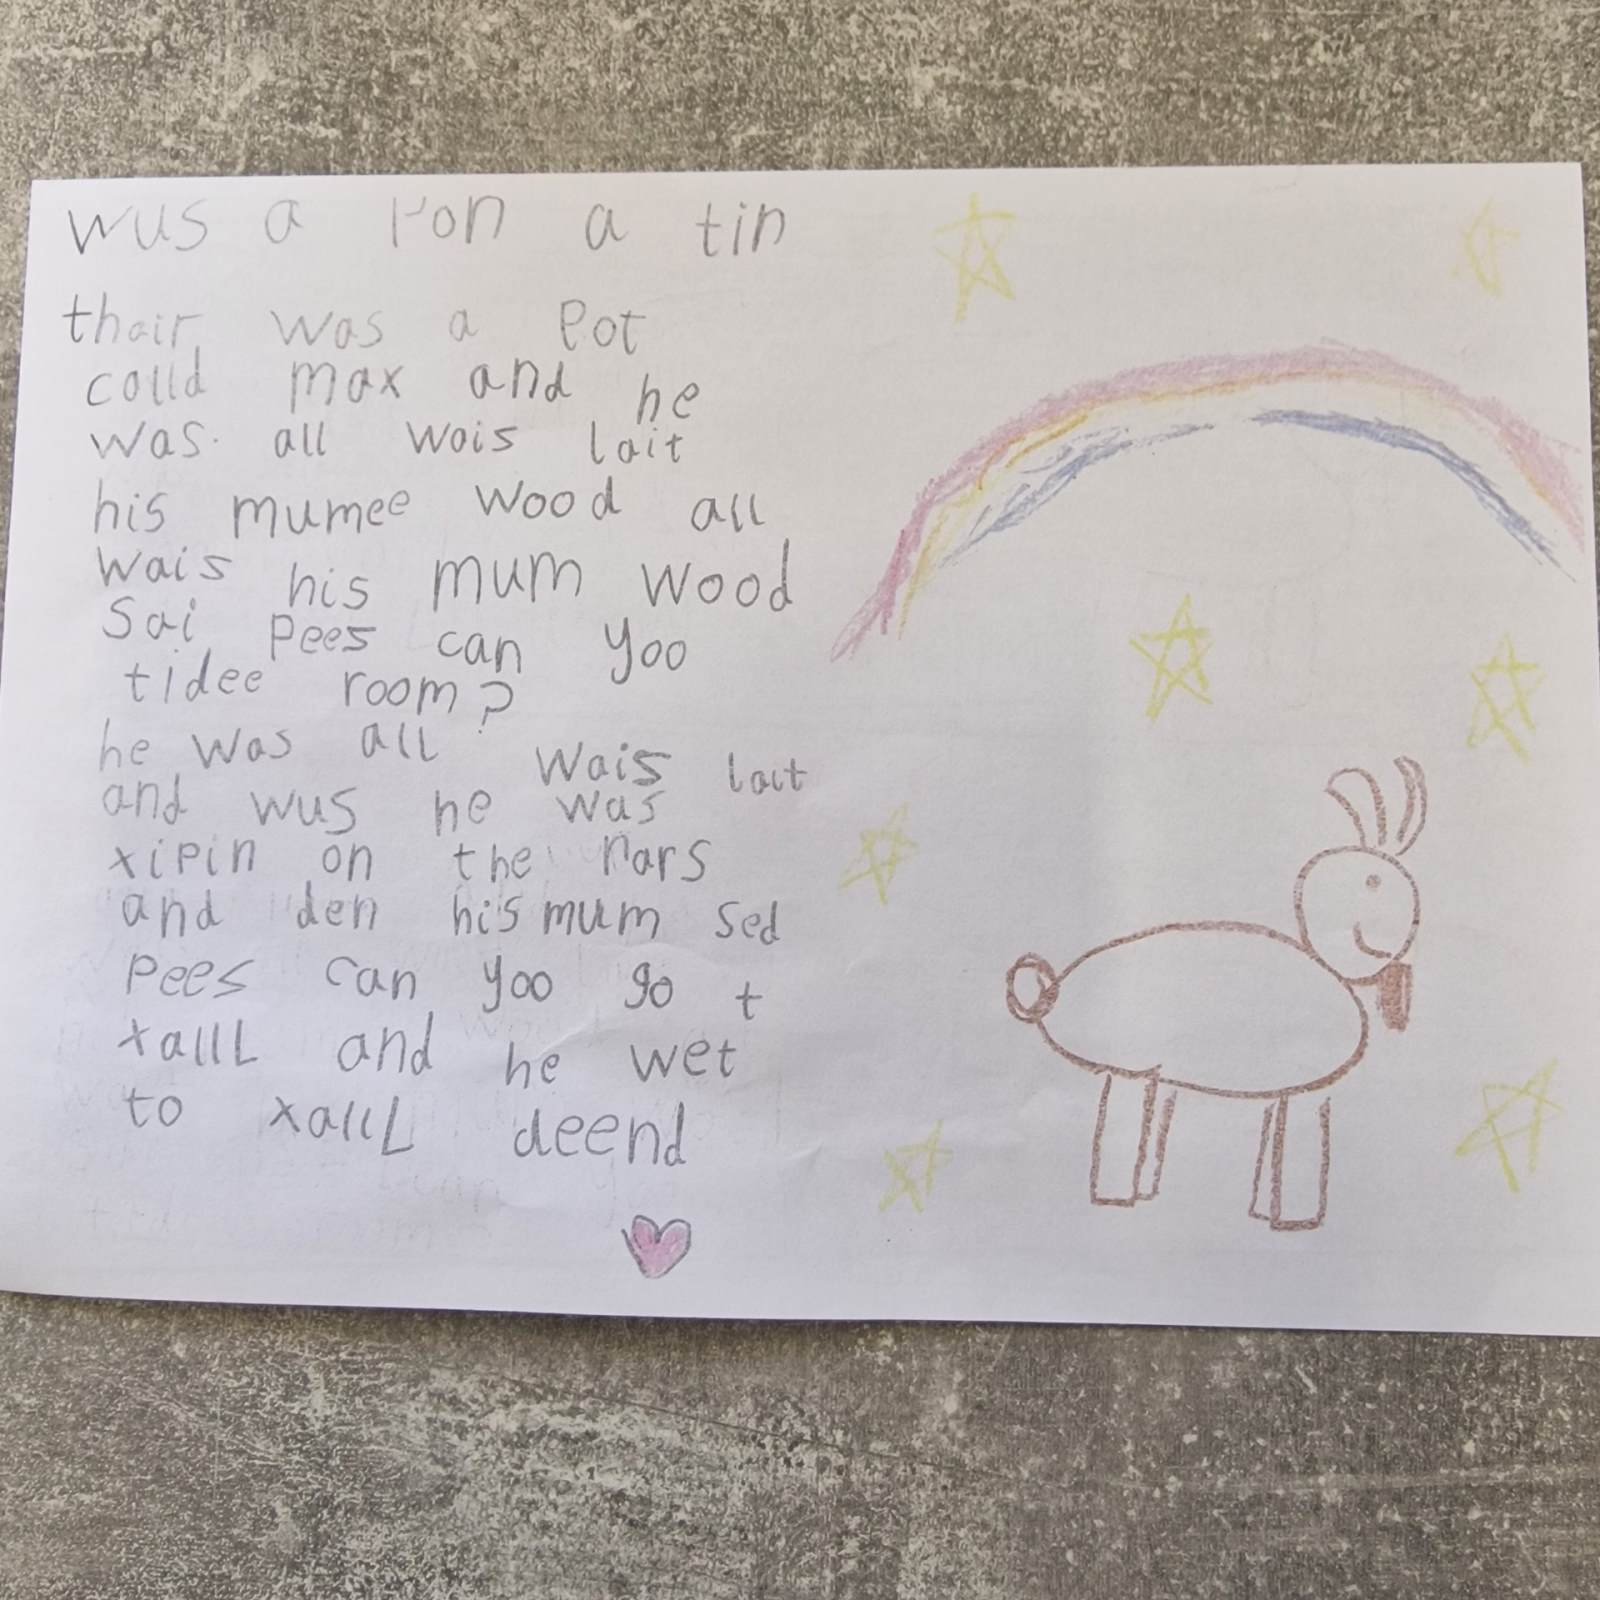 wus a Pon a tin
thair was a Pot
calld max and he
was all wais lait
his mumee wood all
wais his mum wood
Sai Pees can yoo
tidee room?
he was all wais lait
and wus he was
xipin on the nars
and den his mum sed
Pees can yoo go t
xallL and he wet
to xallL deend